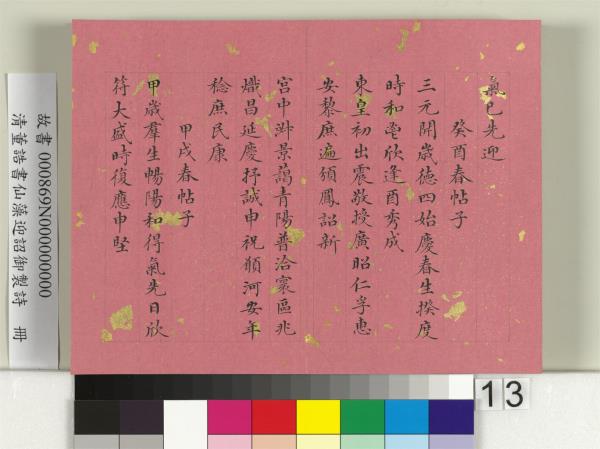 氣已先迎
癸酉春帖子
三元開歲德四始慶春生揆度
時和亟欣逢酉秀成
東皇初出震敬授廣昭仁孚惠
安黎庶遍頒鳳詔新
宮中淑景藹青陽普洽寰區兆
熾昌延慶抒誠申祝願河安年
稔庶民康
甲戌春帖子
甲歲羣生暢陽和得氣先日欣
符大盛時復應申堅
故書 000869N000000000
清董誥書仙藻迎詔御製詩 冊
13